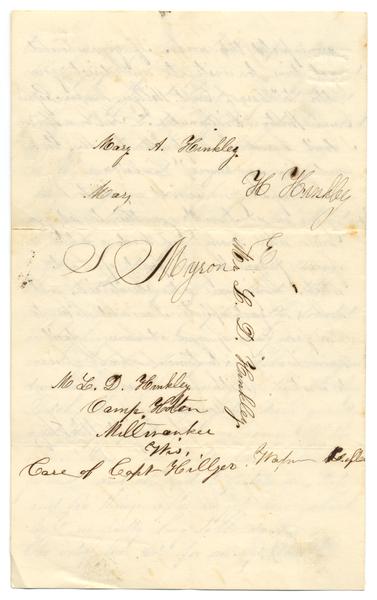 Mary A. Hinkley
Mary
H Hinkley
S Myron E
Mr L. D. Hinkley
M L. D. Hinkley
Camp Holton
Millwaukee
Wis,
Care of Capt Hillyer. Wapn Rifles